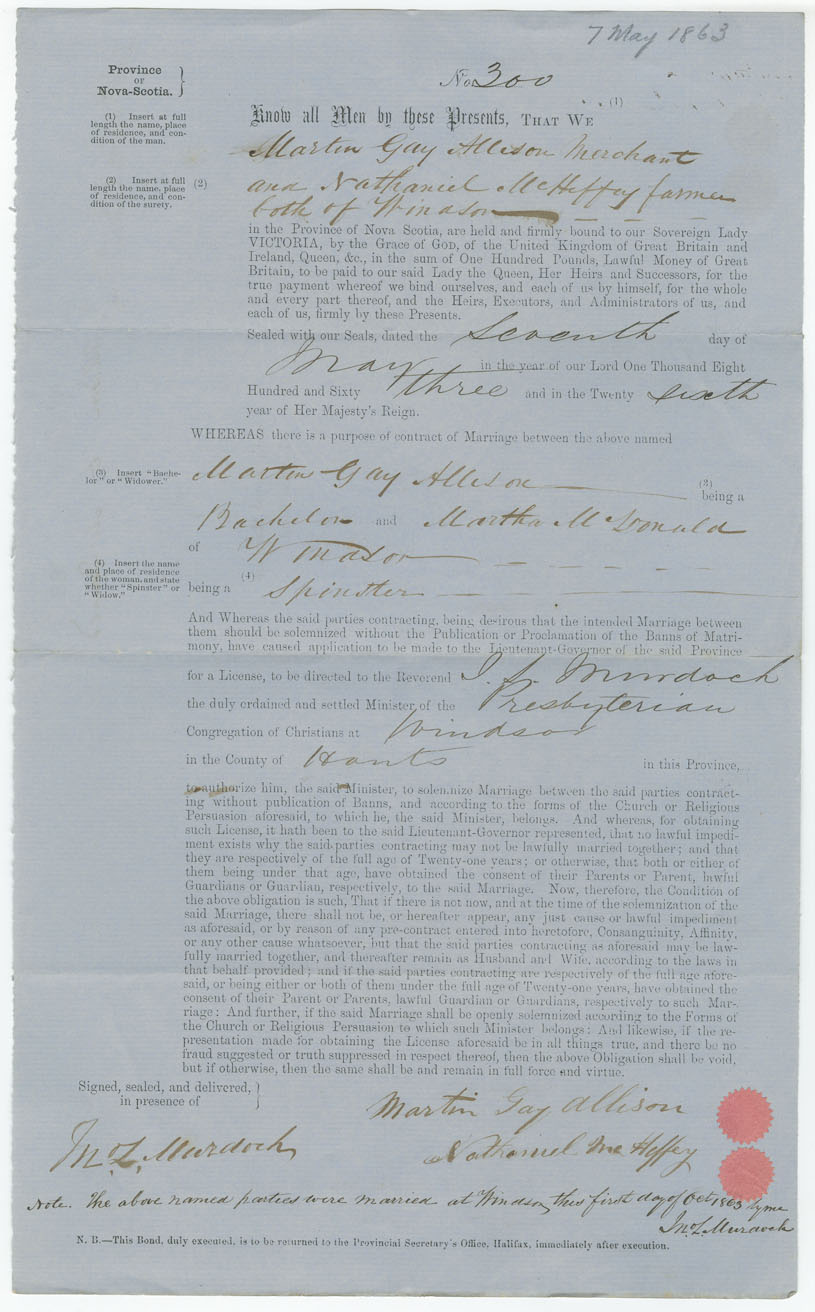 7 May 1863
Province
OF
Nova-Scotia.
No 300
(1) Insert at full
length the name, place
of residence, and con-
dition of the man.
Know all Men by these Presents, THAT WE (1)
Martin Gay Allison Merchant
(2) Insert at full
length the name, place
of residence, and con-
dition of the surety.
(2) and Nathaniel McHeffey farmer
both of Windsor
in the Province of Nova Scotia, are held and firmly bound to our Sovereign Lady
VICTORIA, by the Grace of GOD, of the United Kingdom of Great Britain and
Ireland, Queen, &c., in the sum of One Hundred Pounds, Lawful Money of Great
Britain, to be paid to our said Lady the Queen, Her Heirs and Successors, for the
true payment whereof we bind ourselves, and each of us by himself, for the whole
and every part thereof, and the Heirs, Executors, and Administrators of us, and
each of us, firmly by these Presents.
Sealed with our Seals, dated the Seventh day of
May in the year of our Lord One Thousand Eight
Hundred and Sixty three and in the Twenty sixth
year of Her Majesty's Reign.
WHEREAS there is a purpose of contract of Marriage between the above named
(3) Insert "Bache-
lor" or "Widower."
Martin Gay Allison (3) being a
Bachelor and Martha McDonald
of Windsor
(4) Insert the name
and place of residence
of the woman, and state
whether "Spinster" or
"Widow."
being a (4) Spinster
And Whereas the said parties contracting, being desirous that the intended Marriage between
them should be solemnized without the Publication or Proclamation of the Banns of Matri-
mony, have caused application to be made to the Lieutenant-Governor of the said Province
for a License, to be directed to the Reverend J. L. Murdoch
the duly ordained and settled Minister of the Presbyterian
Congregation of Christians at Windsor
in the County of Hants in this Province,
to authorize him, the said Minister, to solemnize Marriage between the said parties contract-
ing without publication of Banns, and according to the forms of the Church or Religious
Persuasion aforesaid, to which he, the said Minister, belongs. And whereas, for obtaining
such License, it hath been to the said Lieutenant-Governor represented, that no lawful impedi-
ment exists why the said parties contracting may not be lawfully married together; and that
they are respectively of the full age of Twenty-one years; or otherwise, that both or either of
them being under that age, have obtained the consent of their Parents or Parent, lawful
Guardians or Guardian, respectively, to the said Marriage. Now, therefore, the Condition of
the above obligation is such, That if there is not now, and at the time of the solemnization of the
said Marriage, there shall not be, or hereafter appear, any just cause or lawful impediment
as aforesaid, or by reason of any pre-contract entered into heretofore, Consanguinity, Affinity,
or any other cause whatsoever, but that the said parties contracting as aforesaid may be law-
fully married together, and thereafter remain as Husband and Wife, according to the laws in
that behalf provided; and if the said parties contracting are respectively of the full age afore-
said, or being either or both of them under the full age of Twenty-one years, have obtained the
consent of their Parent or Parents, lawful Guardian or Guardians, respectively to such Mar-
riage: And further, if the said Marriage shall be openly solemnized according to the Forms of
the Church or Religious Persuasion to which such Minister belongs: And likewise, if the re-
presentation made for obtaining the License aforesaid be in all things true, and there be no
fraud suggested or truth suppressed in respect thereof, then the above Obligation shall be void,
but if otherwise, then the same shall be and remain in full force and virtue.
Signed, sealed, and delivered,
in presence of
Martin Gay Allison
Jno L. Murdoch
Nathaniel McHeffey
Note. The above named parties were married at Windsor, this first day of Oct 1863 by me
Jno L Murdoch
N. B.—This Bond, duly executed, is to be returned to the Provincial Secretary's Office, Halifax, immediately after execution.